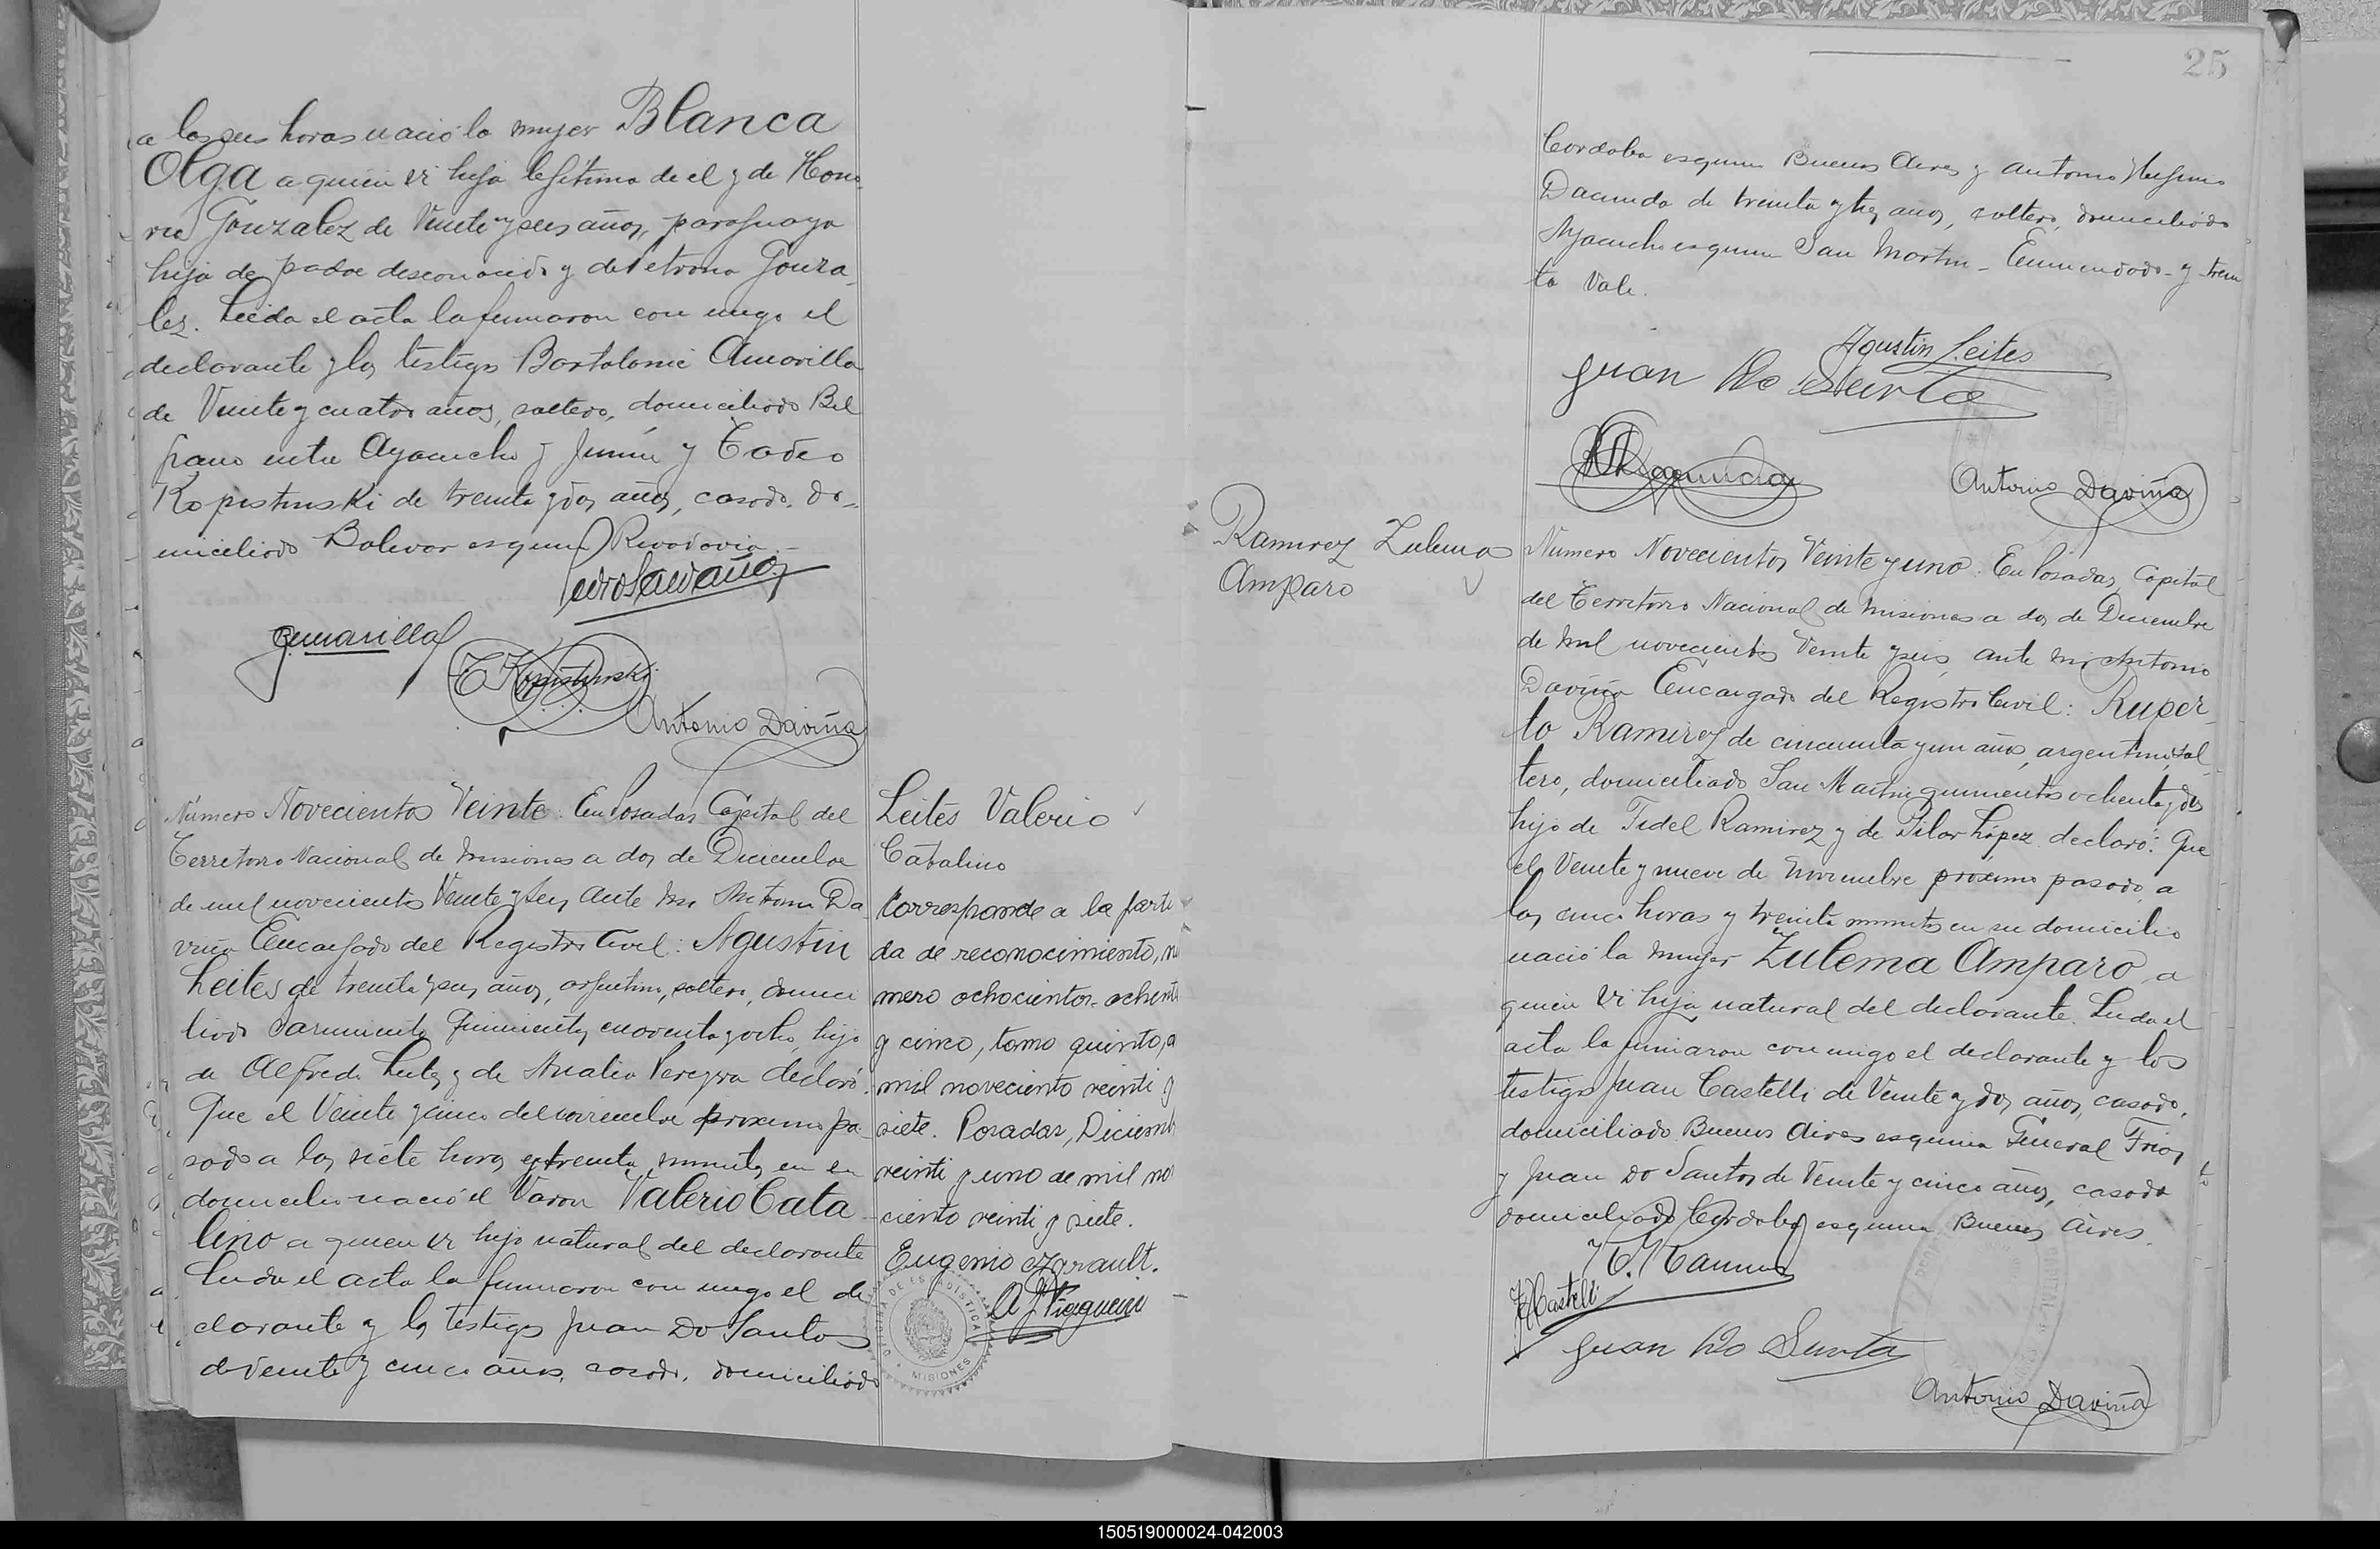 a las seis horas nació la mujer Blanca
Olga a quien vi hija legítima de el y de Hono
ria Gonzalez de Veinte y seis años, paraguaya
hija de padre desconocido y de Petrona Gonza
lez. Leida el acta la firmaron con migo el
declarante y los testigos Bartolomé Amarilla
de Veinte y cuatro años, soltero, domiciliado Bel
grano entre Ayacucho y Junin y Tadeo
Kopistinski de treinta y dos años, casado, do-
miciliado Bolivar esquina Rivadavia.-
Amarilla
T Kopistinski
Antonio Daviña
Número Novecientos Veinte. En Posadas Capital del
Territorio Nacional de Misiones a dos de Diciembre
de mil novecientos Veinte y seis, ante mi Antonio Da
viña Encargado del Registro Civil: Agustin
Leites de treinta y seis años, argentino, soltero, domici
liado Sarmiento Quinientos cuarenta y ocho, hijo
de Alfredo Leites y de Analia Pereyra declaró:
Que el Veinte y cinco de Noviembre proximo pa
sado a las siete horas y treinta minutos en su
domicilio nació el Varon Valerio Cata
lino a quien vi hijo natural del declarante
Leida el acta la firmaron con migo el de
clarante y los testigos Juan Do Santos
de Veinte y cinco años, casado, domiciliado
Leites Valerio
Catalino
Corresponde a la parti
da de reconocimiento, nu
mero ochocientos ochenta
y cinco, tomo quinto, a
mil noveciento veinti y
siete. Posadas, Diciemb
veinti y uno de mil no
ciento veinti y siete.
OFICINA DE ESTADISTICA
MISIONES
25
Cordoba esquina Buenos Aires y Antonio Higinio
Dacunda de treinta y tres años, soltero, domiciliado
Ayacucho esquina San Martin - Enmendado - y trein
ta Vale.
Agustin Leites
Juan Do Santo
Antonio Daviña
Ramirez Zulema
Amparo
Numero Novecientos Veinte y uno. En Posadas, Capital
del Territorio Nacional de Misiones a dos de Diciembre
de mil novecientos Veinte y seis, ante mi Antonio
Daviña Encargado del Registro Civil: Ruper-
to Ramirez de cincuenta y un años, argentino, sol-
tero, domiciliado San Martin quinientos ochenta y dos
hijo de Fidel Ramirez y de Pilar López declaró: Que
el Veinte y nueve de Noviembre próximo pasado, a
las cinco horas y treinta minutos en su domicilio
nació la mujer Zulema Amparo, a
quien vi hija natural del declarante. Leida el
acta la firmaron con migo el declarante y los
testigos Juan Castelli de Veinte y dos años, casado,
domiciliado Buenos Aires esquina General Frias
y Juan Do Santos de Veinte y cinco años, casado
domiciliado Cordoba esquina Buenos Aires.
J Castelli
Juan Do Santo
Antonio Daviña
150519000024-042003